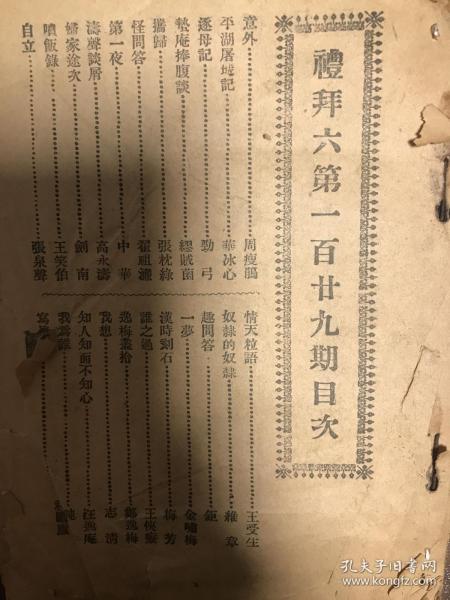 禮拜六第一百廿九期目次
意外……周瘦鵑
平湖屠城記……華冰心
逐母記……勁弓
蟄庵捧腹談……繆賊菌
攜歸……張枕綠
怪問答……翟祖灑
第一夜……中華
濤聲談屑……高永濤
儂家途次……劍南
噴飯錄……王笑伯
自立……張泉聲
情天粒語……王受生
奴隸的奴隸……維章
趣問答……鉅
一夢……金嘯梅
漢時刻石……梅芳
誰之過……王俠癡
逸梅叢拾……鄭逸梅
我想……志清
知人知面不知心……汪逸庵
我為誰
孔夫子旧书网
kongfz.com